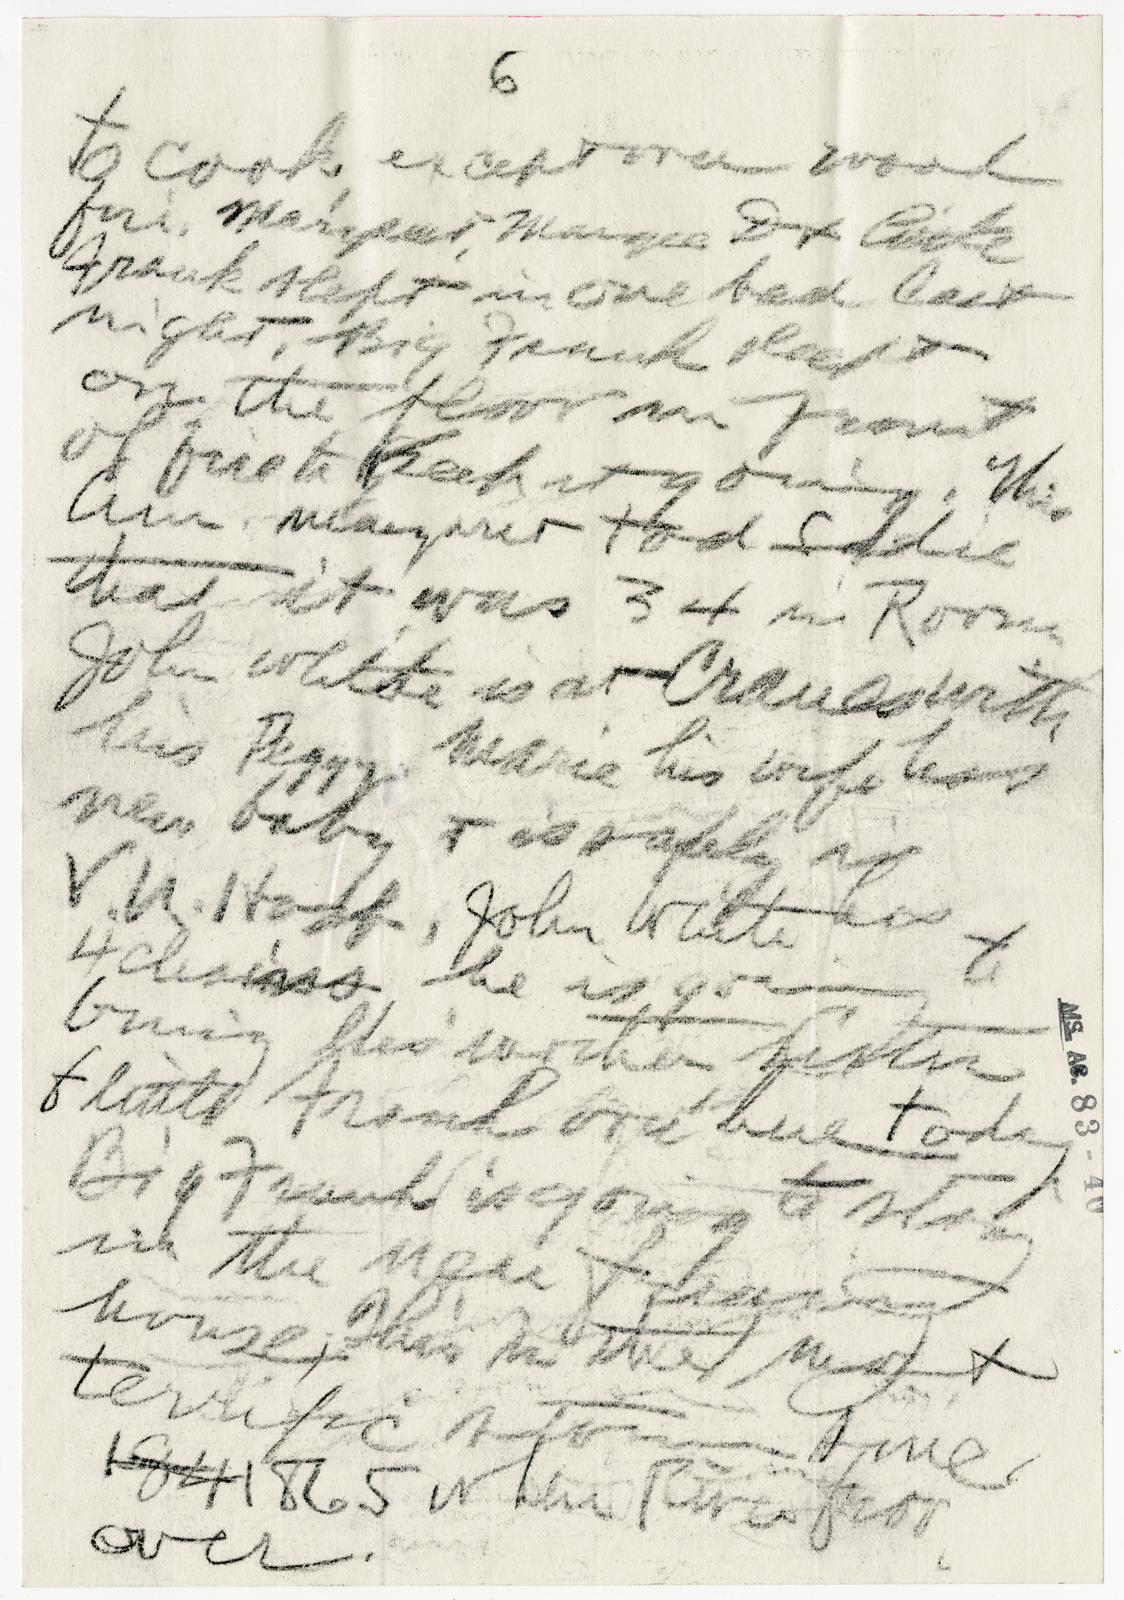 6
to cook except over wood
fire. Margaret, Margee Dot
Frank slept in one bed last
night, Big Frank sleept
on the floor in front
of fire to keep it going. This
am. Margaret told Sadie
that it was 34 in Room
John White is at Cranes with
his Peggy. Marie his wife has
new baby + is safely in
V.U. Hosp, John White has
4 chains he is going to
bring his mother
+ little Frank over here today
Big Frank is going to stay
in the near
house, This is the most
terrific storm
1841865 when River froze
over.
MS. AC. 83-40